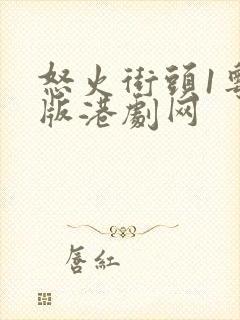 怒火街頭1粵
版港劇网
唇紅